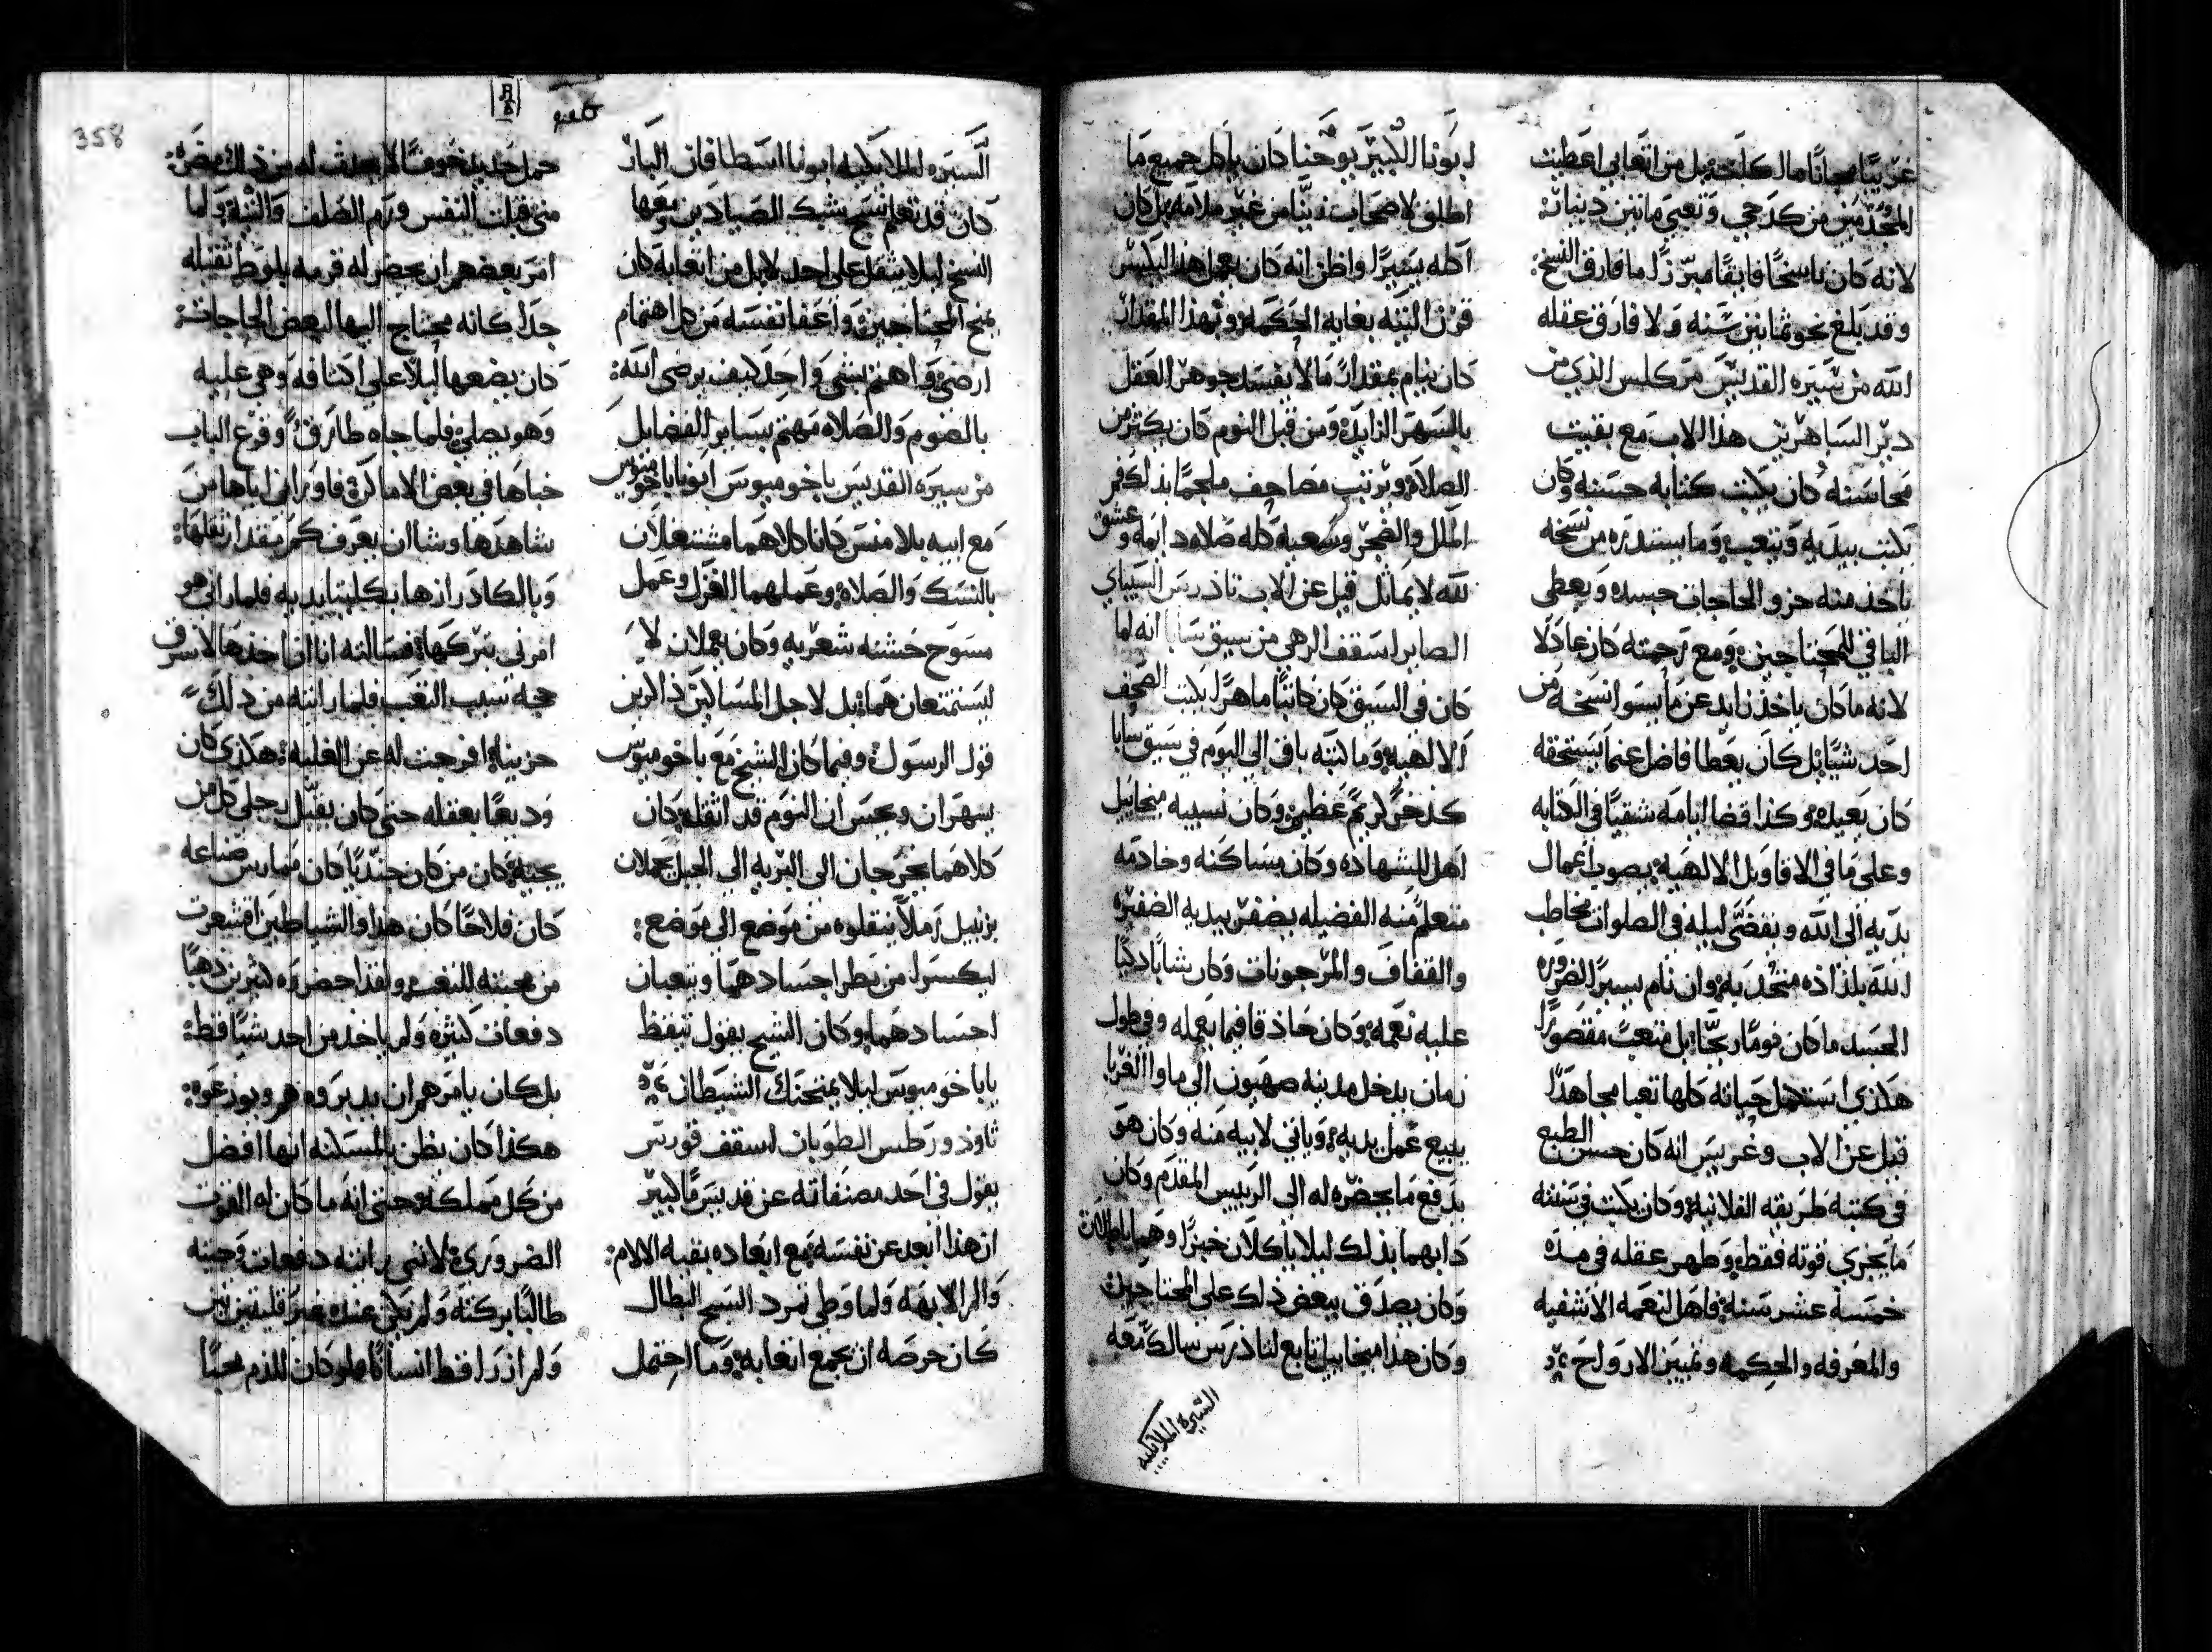 غريبًا مجانًا ما لك كلحته بل من اتعابي اعطيت
المجدمين من كد حي وتعبي مايتين دينار:
لانه كان ناسخًا فايقًا مبرزًا ما فارق النسخ:
وقد بلغ نحو ثمانين سنه ولا فارق عقله
الله من سيره القديس مركلس الذي من
دير الساهرين هذا الاب مع بقيت
محاسنه كان يكتب كتابه حسنه وكان
يكتب بيديه ويتعب وما يستدره من نسخه
ياخذ منه جزو الحاجات جسده ويعطي
الباقي للمحتاجين ومع رحمته كان عادلا
لانه ما كان ياخذ زايد عن ما يسوا نسخه من
احد شيًا بل كان يعطا فاضل عما يستحقه
كان يعيده وكذا قضا ايامه شقيًا في الكتابه
وعلى ما في الاقاويل الالهيه بصوت اعمال
يديه الى الله ويقضي ليله في الصلوات مخاطب
الله بلذاذه متحد به وان نام يسيرًا لضروره
الجسد ما كان نومًا ريحًا بل متعب مقصورًا
هكذى استكمل حياته كلها تعبا مجاهدًا
قيل عن الاب وغريس انه كان حسن الطبع
في كتبه طريقه الفلانيه وكان يكتب في سنته
ما يجرى قوته فقط وطهر عقله في مده
خمسة عشر سنه فاهل لنعمه الاشفيه
والمعرفه والحكمه وتمييز الارواح
ابونا الكبير يوحنا كان ياكل جميع ما
اطلق لاصحاب زيّنا من غير ملامه بل كان
اكله يسيرًا واظن انه كان يعمل هذا اليكسر
قرن التيه بغايه الحكمه وبهذا المقدار
كان ينام بمقدار ما لا يفسد جوهر العقل
بالسهر الزايد ومن قبل النوم كان يكثر من
الصلاه ويرتب مصاحف ملجمًا بذلك فم
الملل والضجر وسعيه كله صلاه دايمه وعشق
لله لا يماثل قيل عن الاب تاذرس السيباى
الصابر اسقف الرهى من سيق سابا انه لما
كان في السيق كان كاتبًا ماهرًا يكتب الصحف
الالهيه وما كتبه باقى الى اليوم في سيق سابا
كذخرًا كريم عظيم وكان نسيبه ميخاييل
اهل للشهاده وكان مساكنه وخادمه
متعلم منه الفضيله يضفر بيديه الضفيره
والقفاف والمرجونات وكان شابًا ذكيًا
عليه نعمه وكان حاذقا فيما يعمله وفي طول
زمان يدخل مدينه صهيون الى ماوا الغربا
يبيع عمل يديه وياتي لابيه منه وكان هو
يدفع ما يحضره له الى الرييس المقدم وكان
دابهما بذلك ليلا ياكلان خبزًا وهما بطالان
وكان يصدق ببعض ذلك على المحتاجين
وكان هذا ميخاييل تابع لتاذرس سالك معه
السيره الملايكيه
السيره الملايكيه ابونا اسطافان البار
كان قد تعلم نسج شبك الصيادين ومعها
النسخ ليلا يثقل على احد لا بل من اتعابه كان
يمنح المحتاجين واعفا نفسه من كل اهتمام
ارضي واهتم بشى واحد كيف يرضى الله:
بالصوم والصلاه مهتم بساير الفضايل
من سيره القديس باخوميوس ابونا باخوميوس
مع ابيه بلامنس كانا كلاهما مشتعلان
بالنسك والصلاه وعملهما الغزل وعمل
مسوح خشنه شعريه وكان يعملان لا
ليستمتعان هما بل لاجل المساكين ذاكرين
قول الرسول وفيما كان الشيخ مع باخوميوس
يسهران ويحس ان النوم قد اثقله كان
كلاهما يخرجان الى البريه الى الجبل يحملان
بزنبيل رملاً ينقلوه من موضع الى موضع:
ليكسرا من بطر اجسادهما ويتعبان
اجسادهما وكان الشيخ يقول تيقظ
يا باخوميوس ليلا يمتحنك الشيطان
ثاوذورطس الطوبان اسقف قورس
يقول في احد مصنفاته عن قديس ما كبير
ان هذا ابعد عن نفسه مع ابعاده بقيه الالام:
والمر الابهه ولما وطى تمرد السبح البطال
كان حرصه ان يجمع اتعابه وما احتمل
358
حمل حديد خوفًا لا يحدث له من ذلك مضره:
متى قبلت النفس ورم الصلف والتيه ولما
امر بعضهم ان يحضر له قرميه بلوط ثقيله
جدًا كانه محتاج اليها لبعض الحاجات:
كان يضعها ليلاً على اكتافه وهي عليه
وهو يصلي فلما جاه طارق وقرع الباب
خباها في بعض الاماكن فاورانى اياها من
شاهدها وشا ان يعرف كم مقدار ثقلها:
وبالكاد رازها بكلتا يديه فلما رانى هو
امرنى بتركها فسالته انا انى اخذها لا سرق
حجة سبب التعب فلما رايته من ذلك
حزينا افرجت له عن الغلبه هكذى كان
وديعًا بعقله حتى كان يقبل رجلى كل من
يجيه كان من كان جنديًا كان ممارس صناعه
كان فلاحًا كان هذا والشياطين اقشعرت
من محبته للتعب ولقد احضروه كثيرين ذهبًا
دفعات كثيره ولم ياخذ من احد شيًا قط:
بل كان يامرهم ان يدبروه هم ويوزعوه:
هكذا كان يظن بالمسكنه انها افضل
من كل مملكه حتى انه ما كان له القوت
الضرورى لانني راتبه دفعات وجيته
طالبًا بركته ولم يكن عنده غير قليقتين تين
ولم ازدرا قط انسانًا ولو كان للذم محبًا